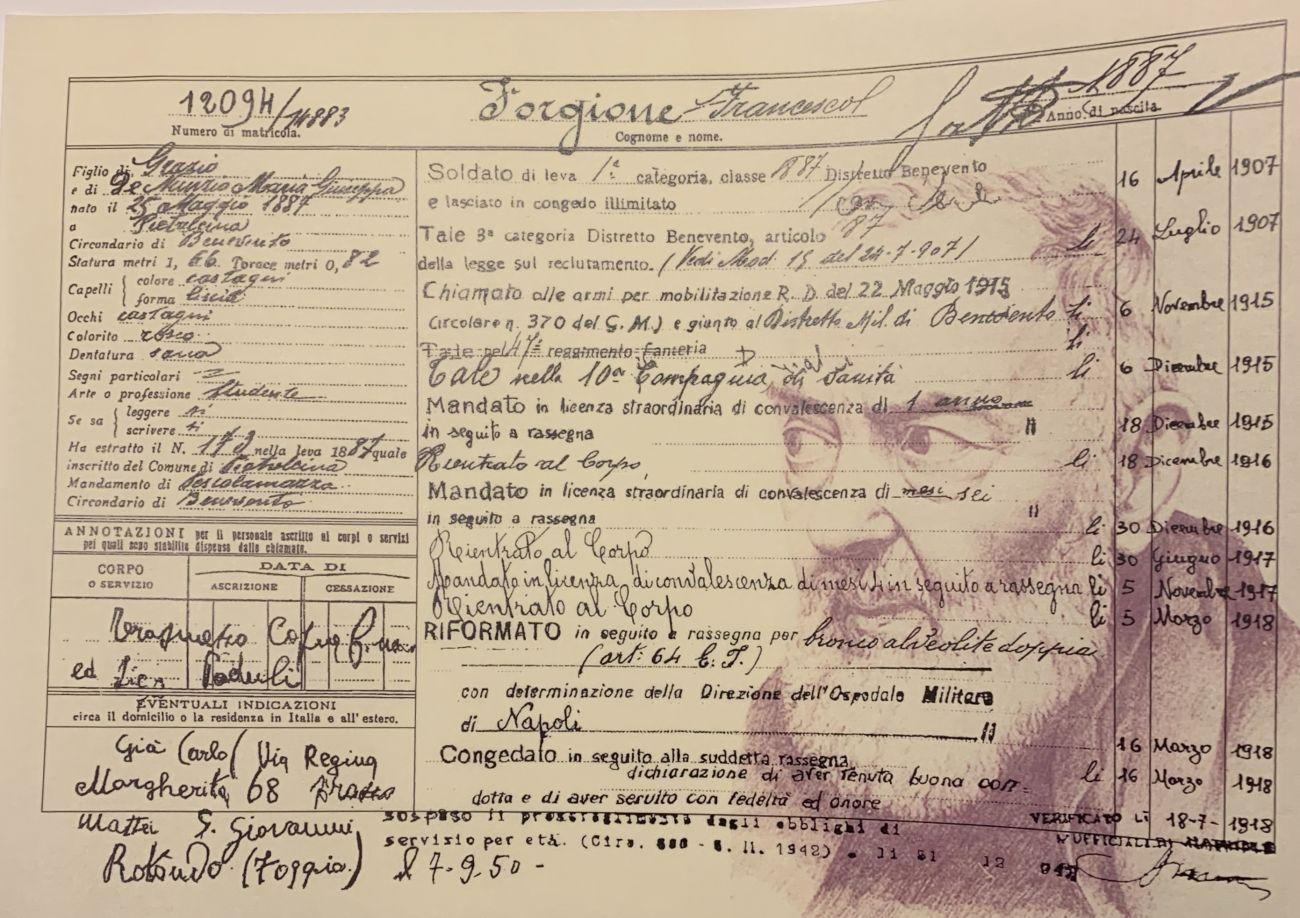 12094/14883
Numero di matricola.
Forgione Francesco
Cognome e nome.
1887
Anno di nascita
Figlio di Grazio
e di De Nunzio Maria Giuseppa
nato il 25 Maggio 1887
a Pietrelcina
Circondario di Benevento
Statura metri 1, 66 Torace metri 0, 82
Capelli colore castagni
forma liscia
Occhi castagni
Colorito roseo
Dentatura sana
Segni particolari =
Arte o professione Studente
Se sa leggere si
scrivere si
Ha estratto il N. 173 nella leva 1887 quale
inscritto del Comune di Pietrelcina
Mandamento di Pescolamazza
Circondario di Benevento
ANNOTAZIONI per il personale ascritto ai corpi o servizi
pei quali sono stabilite dispense dalle chiamate.
CORPO
O SERVIZIO
DATA DI
ASCRIZIONE
CESSAZIONE
ed
Paduli
EVENTUALI INDICAZIONI
circa il domicilio o la residenza in Italia e all'estero.
Già Via Regina
Margherita 68
Mattei S. Giovanni
Rotondo (Foggia) 7-9-50-
Soldato di leva 1ª categoria, classe 1887 Distretto Benevento
e lasciato in congedo illimitato 16 Aprile 1907
Tale 3ª categoria Distretto Benevento, articolo 87
della legge sul reclutamento. (Vedi Mod. 15 del 24-7-907) li 24 Luglio 1907
Chiamato alle armi per mobilitazione R. D. del 22 Maggio 1915
Circolare n. 370 del G. M.) e giunto al Distretto Mil. di Benevento li 6 Novembre 1915
Tale nel 47º reggimento fanteria li
Tale nella 10ª Compagnia di Sanità li 6 Dicembre 1915
Mandato in licenza straordinaria di convalescenza di 1 anno
in seguito a rassegna " 18 Dicembre 1915
Rientrato al Corpo, li 18 Dicembre 1916
Mandato in licenza straordinaria di convalescenza di mesi sei
in seguito a rassegna " 30 Dicembre 1916
Rientrato al Corpo li 30 Giugno 1917
Mandato in licenza di convalescenza di mesi 4 in seguito a rassegna li 5 Novembre 1917
Rientrato al Corpo li 5 Marzo 1918
RIFORMATO in seguito a rassegna per bronco alveolite doppia
(art: 64 E. I.)
con determinazione della Direzione dell'Ospedale Militare
di Napoli " 16 Marzo 1918
Congedato in seguito alla suddetta rassegna
dichiarazione di aver tenuta buona con= li 16 Marzo 1918
dotta e di aver servito con fedeltà ed onore
VERIFICATO LI 18-7-1918
sospeso il dagli obblighi di
servizio per età. (Circ. - 1942) li 31 12 942
L'UFFICIALE DI MATRICOLA